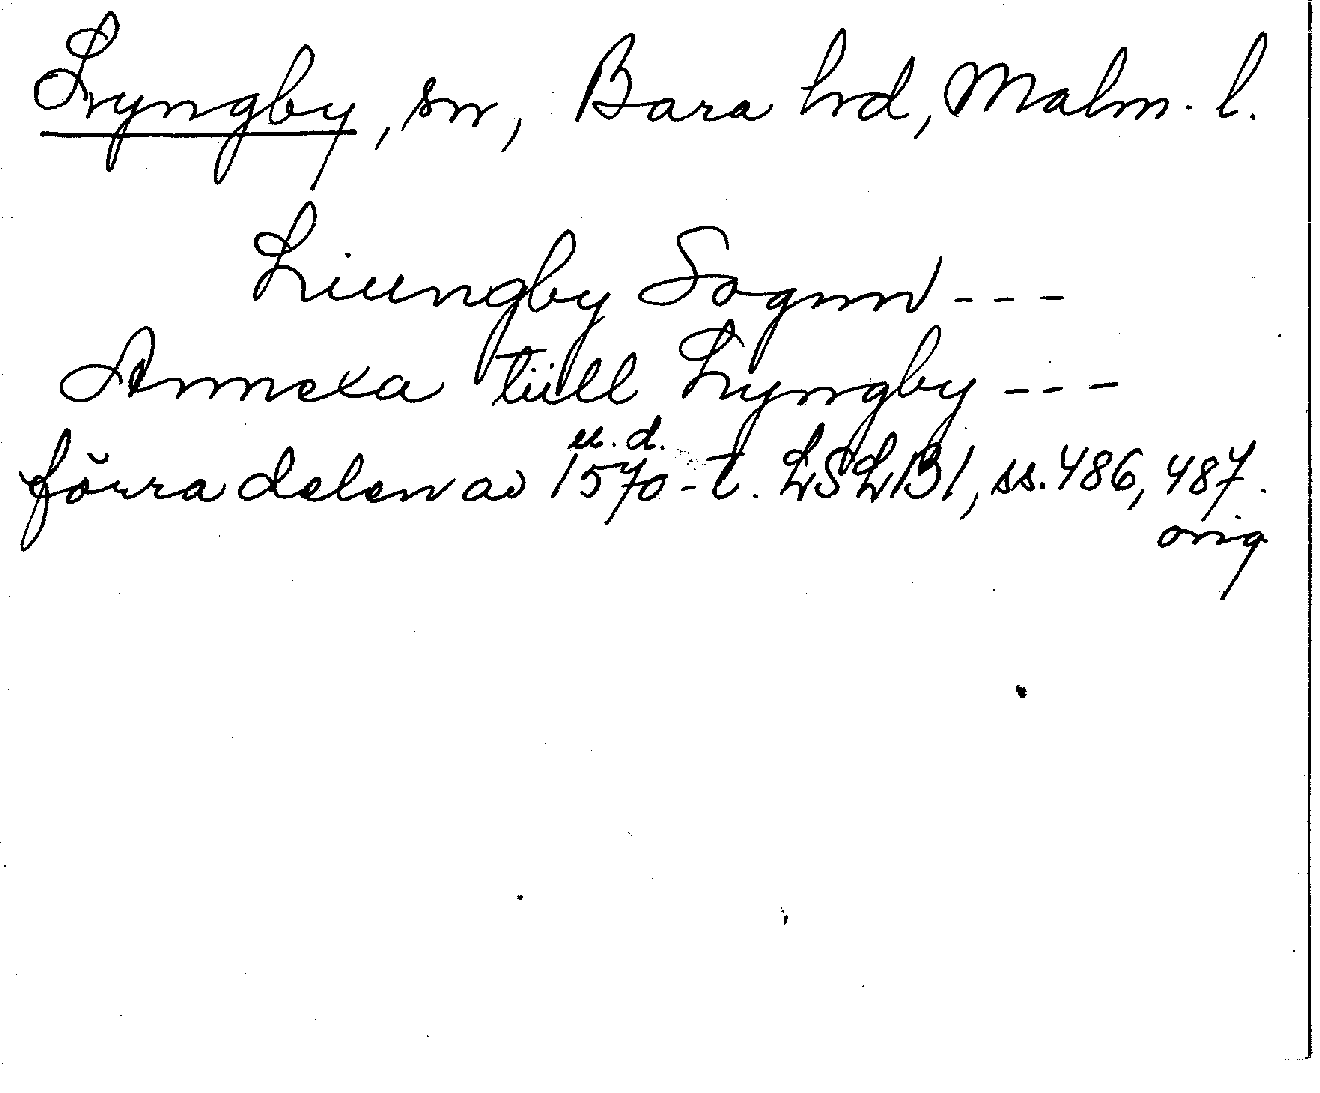 Lyngby, sn, Bara hd, Malm. l.
Liungby Sognn ---
Annexa tiill Lyngby ---
u. d.
förra delen av 1570-t. LSLB1, ss. 486, 487.
orig